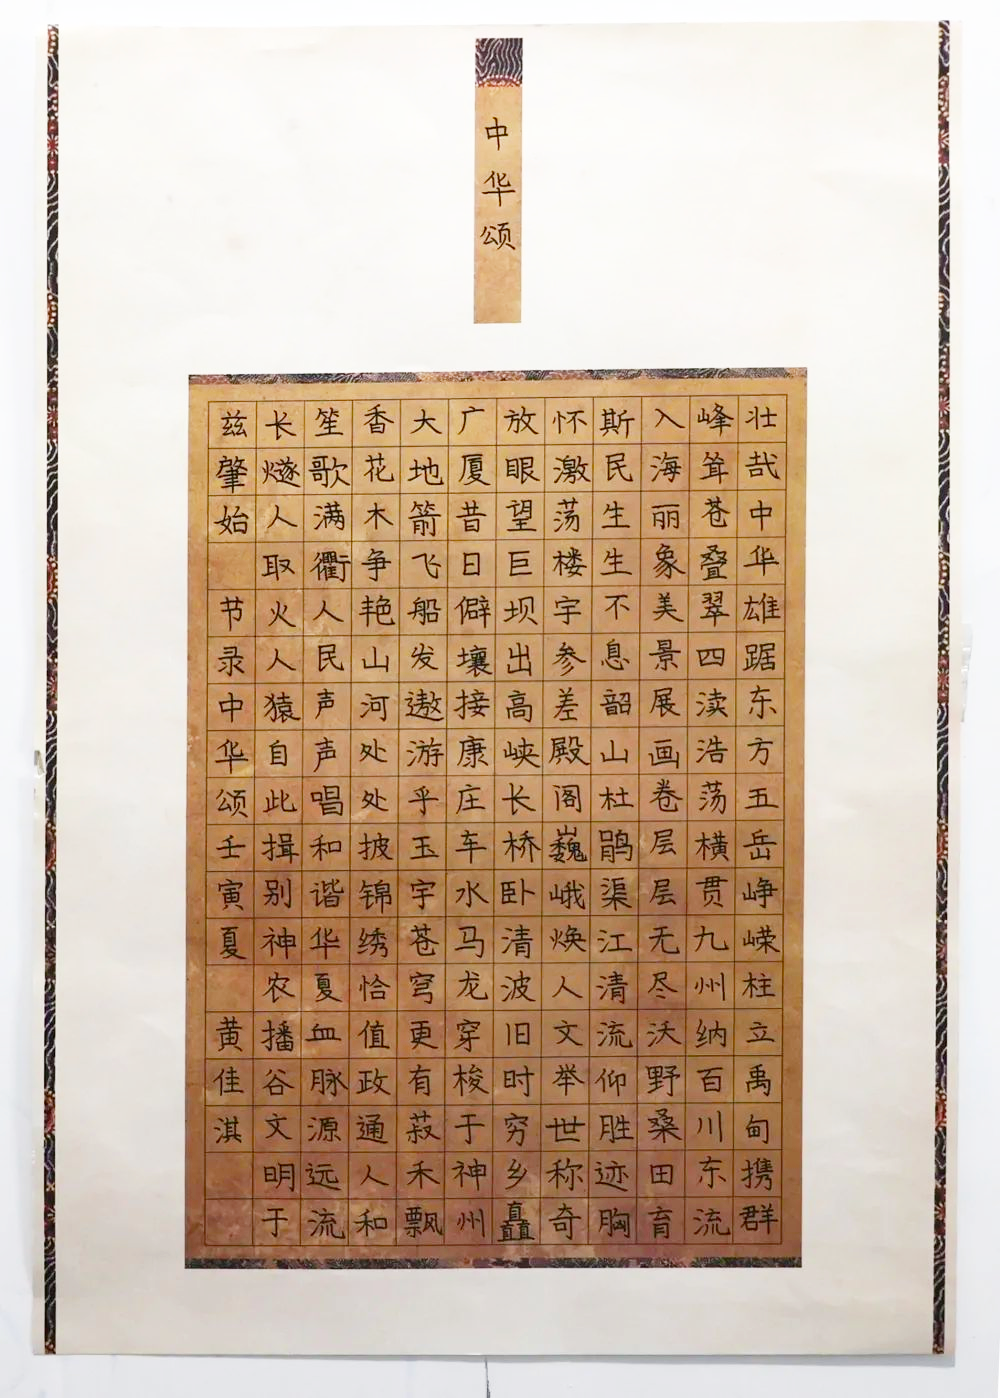 中华颂
壮哉中华雄踞东方五岳峥嵘柱立禹甸携群
峰耸苍叠翠四渎浩荡横贯九州纳百川东流
入海丽象美景展画卷层层无尽沃野桑田育
斯民生生不息韶山杜鹃渠江清流仰胜迹胸
怀激荡楼宇参差殿阁巍峨焕人文举世称奇
放眼望巨坝出高峡长桥卧清波旧时穷乡矗
广厦昔日僻壤接康庄车水马龙穿梭于神州
大地箭飞船发遨游乎玉宇苍穹更有菽禾飘
香花木争艳山河处处披锦绣恰值政通人和
笙歌满衢人民声声唱和谐华夏血脉源远流
长燧人取火人猿自此揖别神农播谷文明于
兹肇始 节录中华颂壬寅夏 黄佳淇